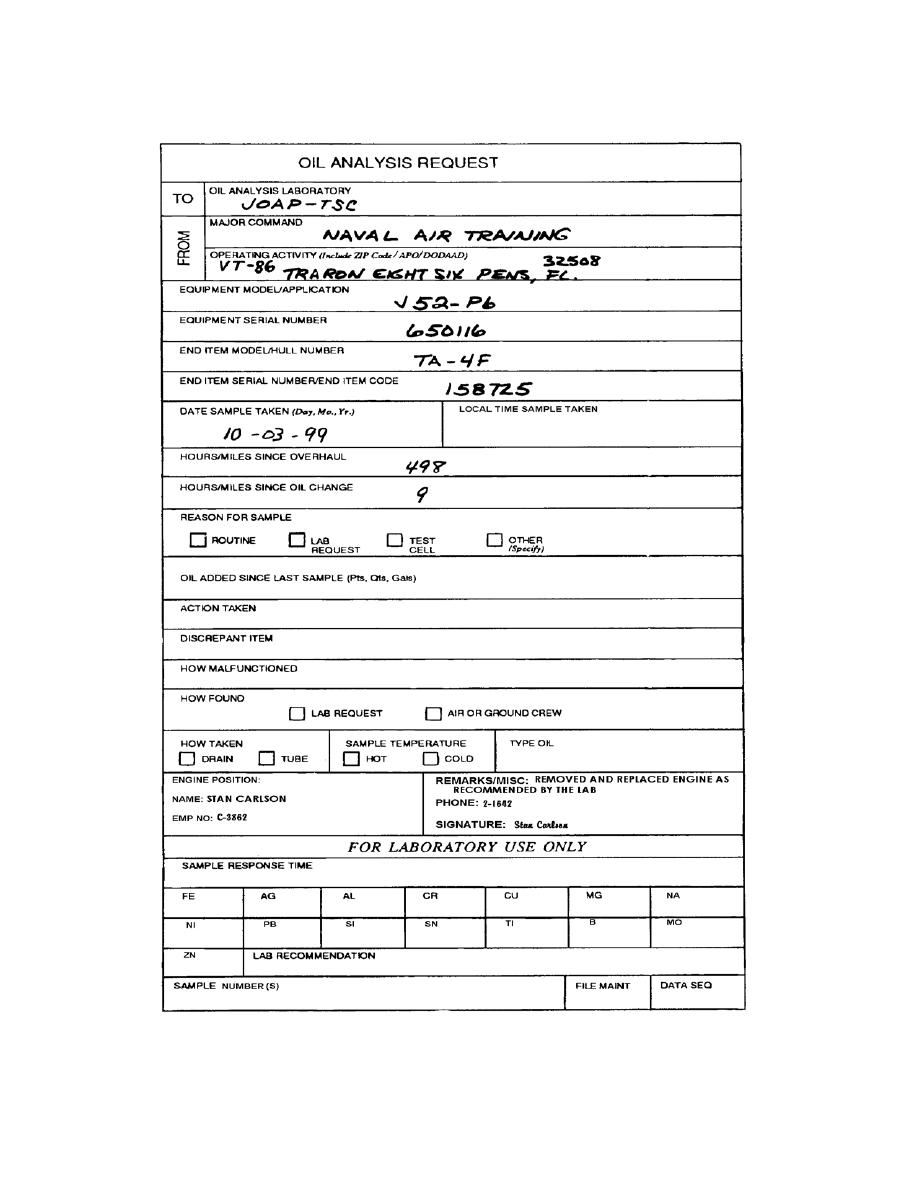 OIL ANALYSIS REQUEST
TO
OIL ANALYSIS LABORATORY
JOAP-TSC
FROM
MAJOR COMMAND
NAVAL AIR TRAINING
OPERATING ACTIVITY (Include ZIP Code/APO/DODAAD)
32508
VT-86 TRARON EIGHT SIX PENS, FL.
EQUIPMENT MODEL/APPLICATION
J52-P6
EQUIPMENT SERIAL NUMBER
650116
END ITEM MODEL/HULL NUMBER
TA-4F
END ITEM SERIAL NUMBER/END ITEM CODE
158725
DATE SAMPLE TAKEN (Day, Mo., Yr.)
10-03-99
LOCAL TIME SAMPLE TAKEN
HOURS/MILES SINCE OVERHAUL
498
HOURS/MILES SINCE OIL CHANGE
9
REASON FOR SAMPLE
ROUTINE
LAB
REQUEST
TEST
CELL
OTHER
(Specify)
OIL ADDED SINCE LAST SAMPLE (Pts, Qts, Gals)
ACTION TAKEN
DISCREPANT ITEM
HOW MALFUNCTIONED
HOW FOUND
LAB REQUEST AIR OR GROUND CREW
HOW TAKEN
DRAIN TUBE
SAMPLE TEMPERATURE
HOT COLD
TYPE OIL
ENGINE POSITION:
NAME: STAN CARLSON
EMP NO: C-3862
REMARKS/MISC: REMOVED AND REPLACED ENGINE AS
RECOMMENDED BY THE LAB
PHONE: 2-1642
SIGNATURE: Stan Carlson
FOR LABORATORY USE ONLY
SAMPLE RESPONSE TIME
FE AG AL CR CU MG NA
NI PB SI SN TI B MO
ZN LAB RECOMMENDATION
SAMPLE NUMBER(S) FILE MAINT DATA SEQ